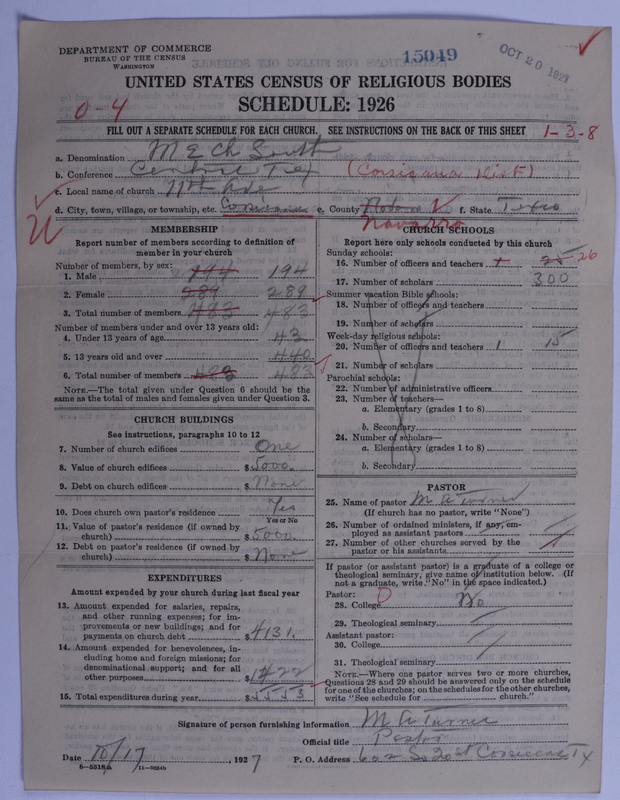 DEPARTMENT OF COMMERCE
BUREAU OF THE CENSUS
WASHINGTON
15049
OCT 20 1927
UNITED STATES CENSUS OF RELIGIOUS BODIES
SCHEDULE: 1926
0-4
FILL OUT A SEPARATE SCHEDULE FOR EACH CHURCH. SEE INSTRUCTIONS ON THE BACK OF THIS SHEET
1-3-8
a. Denomination M E Ch South
b. Conference Central Tex (Corsicana Dist)
c. Local name of church 11th Ave
d. City, town, village, or township, etc. Corsicana e. County Navarro f. State Texas
MEMBERSHIP
Report number of members according to definition of member in your church
Number of members, by sex:
1. Male 194 194
2. Female 289 289
3. Total number of members 483 483
Number of members under and over 13 years old:
4. Under 13 years of age 43
5. 13 years old and over 440
6. Total number of members 483 483
NOTE.—The total given under Question 6 should be the same as the total of males and females given under Question 3.
CHURCH BUILDINGS
See instructions, paragraphs 10 to 12
7. Number of church edifices One
8. Value of church edifices $5000.
9. Debt on church edifices $ None
10. Does church own pastor's residence Yes
Yes or No
11. Value of pastor's residence (if owned by church) $5000.
12. Debt on pastor's residence (if owned by church) $ None
EXPENDITURES
Amount expended by your church during last fiscal year
13. Amount expended for salaries, repairs, and other running expenses; for improvements or new buildings; and for payments on church debt $4131.
14. Amount expended for benevolences, including home and foreign missions; for denominational support; and for all other purposes $1422
15. Total expenditures during year $5553
CHURCH SCHOOLS
Report here only schools conducted by this church
Sunday schools:
16. Number of officers and teachers 25 26
17. Number of scholars 300
Summer vacation Bible schools:
18. Number of officers and teachers
19. Number of scholars
Week-day religious schools:
20. Number of officers and teachers 1 15
21. Number of scholars
Parochial schools:
22. Number of administrative officers
23. Number of teachers—
a. Elementary (grades 1 to 8)
b. Secondary
24. Number of scholars—
a. Elementary (grades 1 to 8)
b. Secondary
PASTOR
25. Name of pastor M A Turner
(If church has no pastor, write "None")
26. Number of ordained ministers, if any, employed as assistant pastors
27. Number of other churches served by the pastor or his assistants
If pastor (or assistant pastor) is a graduate of a college or theological seminary, give name of institution below. (If not a graduate, write "No" in the space indicated.)
Pastor:
28. College No
29. Theological seminary
Assistant pastor:
30. College
31. Theological seminary
NOTE.—Where one pastor serves two or more churches, Questions 28 and 29 should be answered only on the schedule for one of the churches; on the schedules for the other churches, write "See schedule for church."
Signature of person furnishing information M A Turner
Official title Pastor
Date 10/17, 1927 P. O. Address 602 So 20 st Corsicana Tx